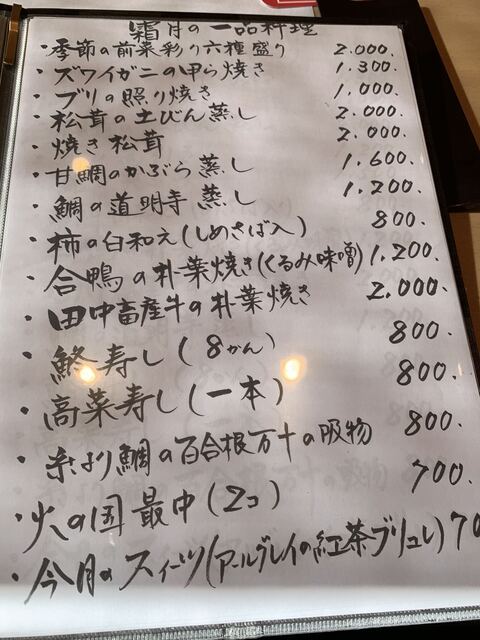 霜月の一品料理
・季節の前菜彩り六種盛り 2.000.
・ズワイガニの甲ら焼き 1.300.
・ブリの照り焼き 1.000.
・松茸の土びん蒸し 2.000.
・焼き松茸 2.000.
・甘鯛のかぶら蒸し 1.600.
・鯛の道明寺蒸し 1.200.
・柿の白和え(しめさば入) 800.
・合鴨の朴葉焼き(くるみ味噌) 1.200.
・田中畜産牛の朴葉焼き 2.000.
・寿し(8かん) 800.
・高菜寿し(一本) 800.
・糸より鯛の百合根万十の吸物 800.
・火の国最中(2コ) 700.
・今月のスイーツ(アールグレイの紅茶ブリュレ) 70